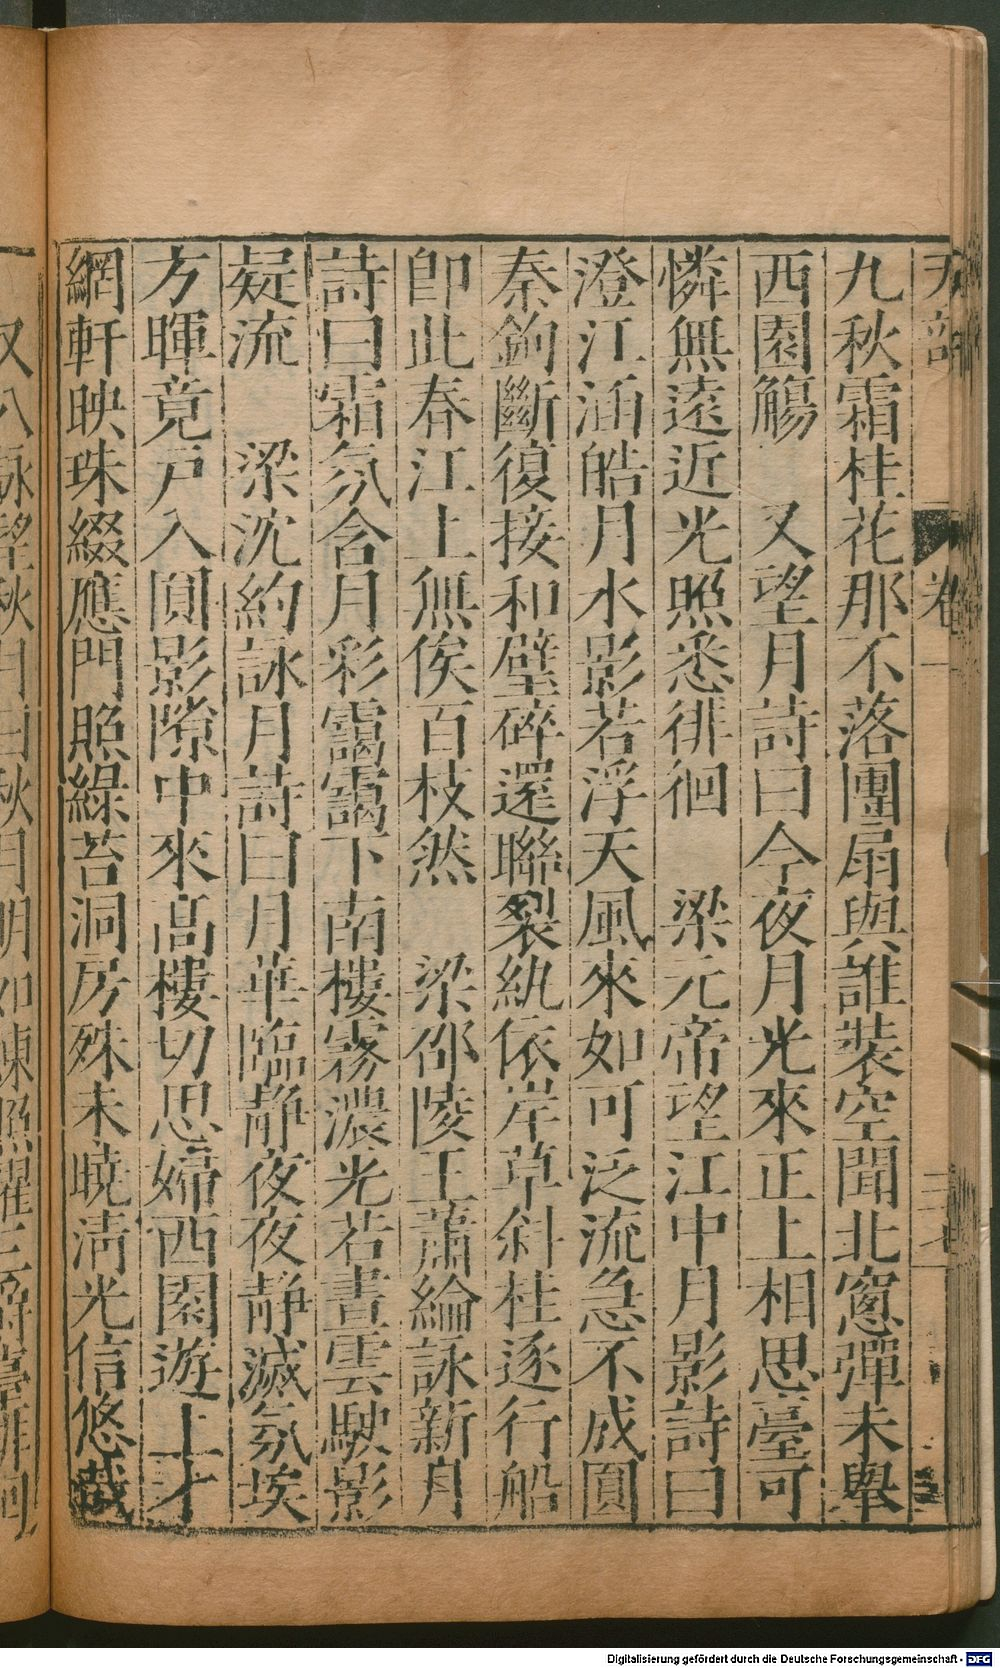 九秋霜桂花那不落團扇與誰裝空聞北窻彈未舉
西園觴 又望月詩曰今夜月光來正上相思臺可
憐無遠近光照悉徘徊 梁元帝望江中月影詩曰
澄江涵皓月水影若浮天風來如可泛流急不成圓
秦鉤斷復接和璧碎還聯裂紈依岸草斜桂逐行船
卽此春江上無俟百枝然 梁邵陵王蕭綸詠新月
詩曰霜氛含月彩靄靄下南樓霧濃光若晝雲駛影
疑流 梁沈約詠月詩曰月華臨靜夜夜靜滅氛埃
方暉竟戶入圓影隙中來高樓切思婦西園遊上才
網軒映珠綴應門照綠苔洞房殊未曉淸光信悠哉
卷一
Digitalisierung gefördert durch die Deutsche Forschungsgemeinschaft - DFG